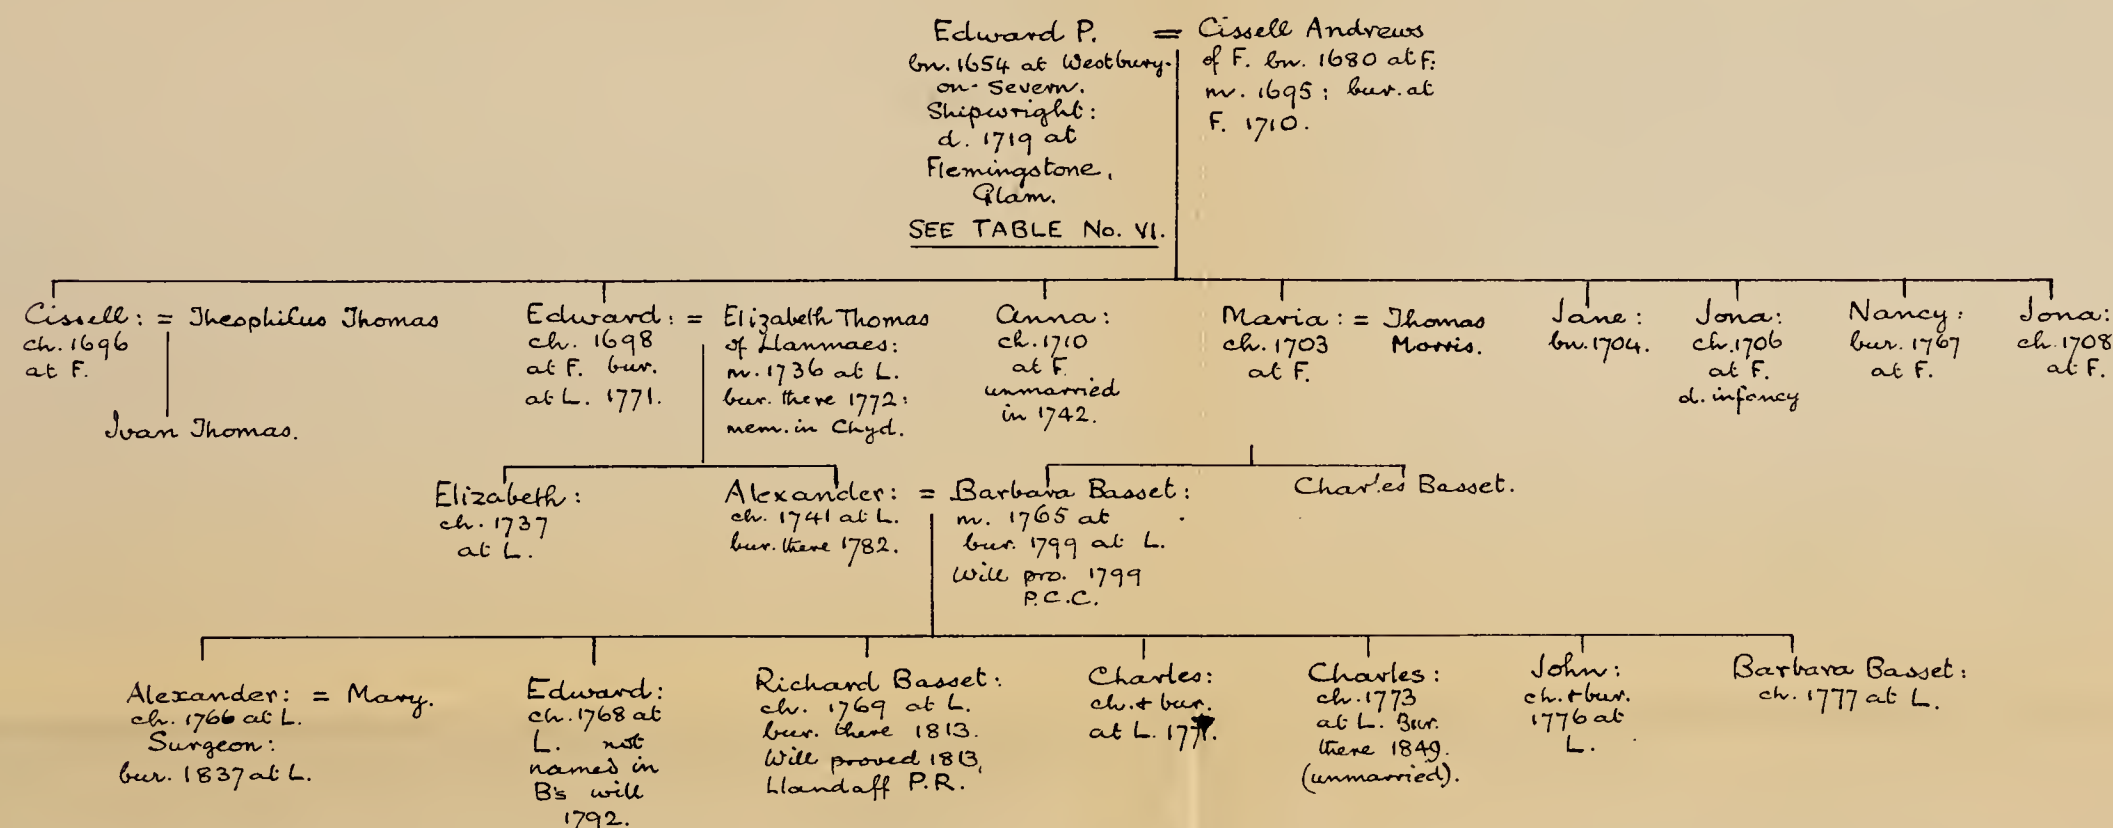 Edward P. = Cissell Andrews
bn. 1654 at Westbury-
on-Severn.
Shipwright:
d. 1719 at
Flemingstone,
Glam.
SEE TABLE No. VI.
of F. bn. 1680 at F.
m. 1695; bur. at
F. 1710.
Cissell: = Theophilus Thomas
ch. 1696
at F.
Ivan Thomas.
Edward: = Elizabeth Thomas
ch. 1698
at F. bur.
at L. 1771.
of Llanmaes:
m. 1736 at L.
bur. there 1772:
mem. in Chyd.
Anna:
ch. 1710
at F.
unmarried
in 1742.
Maria: = Thomas
ch. 1703
at F.
Morris.
Jane:
bn. 1704.
Jona:
ch. 1706
at F.
d. infancy
Nancy:
bur. 1767
at F.
Jona:
ch. 1708
at F.
Elizabeth:
ch. 1737
at L.
Alexander: = Barbara Basset:
ch. 1741 at L.
bur. there 1782.
m. 1765 at
bur. 1799 at L.
Will pro. 1799
P.C.C.
Charles Basset.
Alexander: = Mary.
ch. 1766 at L.
Surgeon:
bur. 1837 at L.
Edward:
ch. 1768 at
L. not
named in
B's will
1792.
Richard Basset:
ch. 1769 at L.
bur. there 1813.
Will proved 1813,
Llandaff P.R.
Charles:
ch. + bur.
at L.
Charles:
ch. 1773
at L. Bur.
there 1849.
(unmarried).
John:
ch. + bur.
1776 at
L.
Barbara Basset:
ch. 1777 at L.